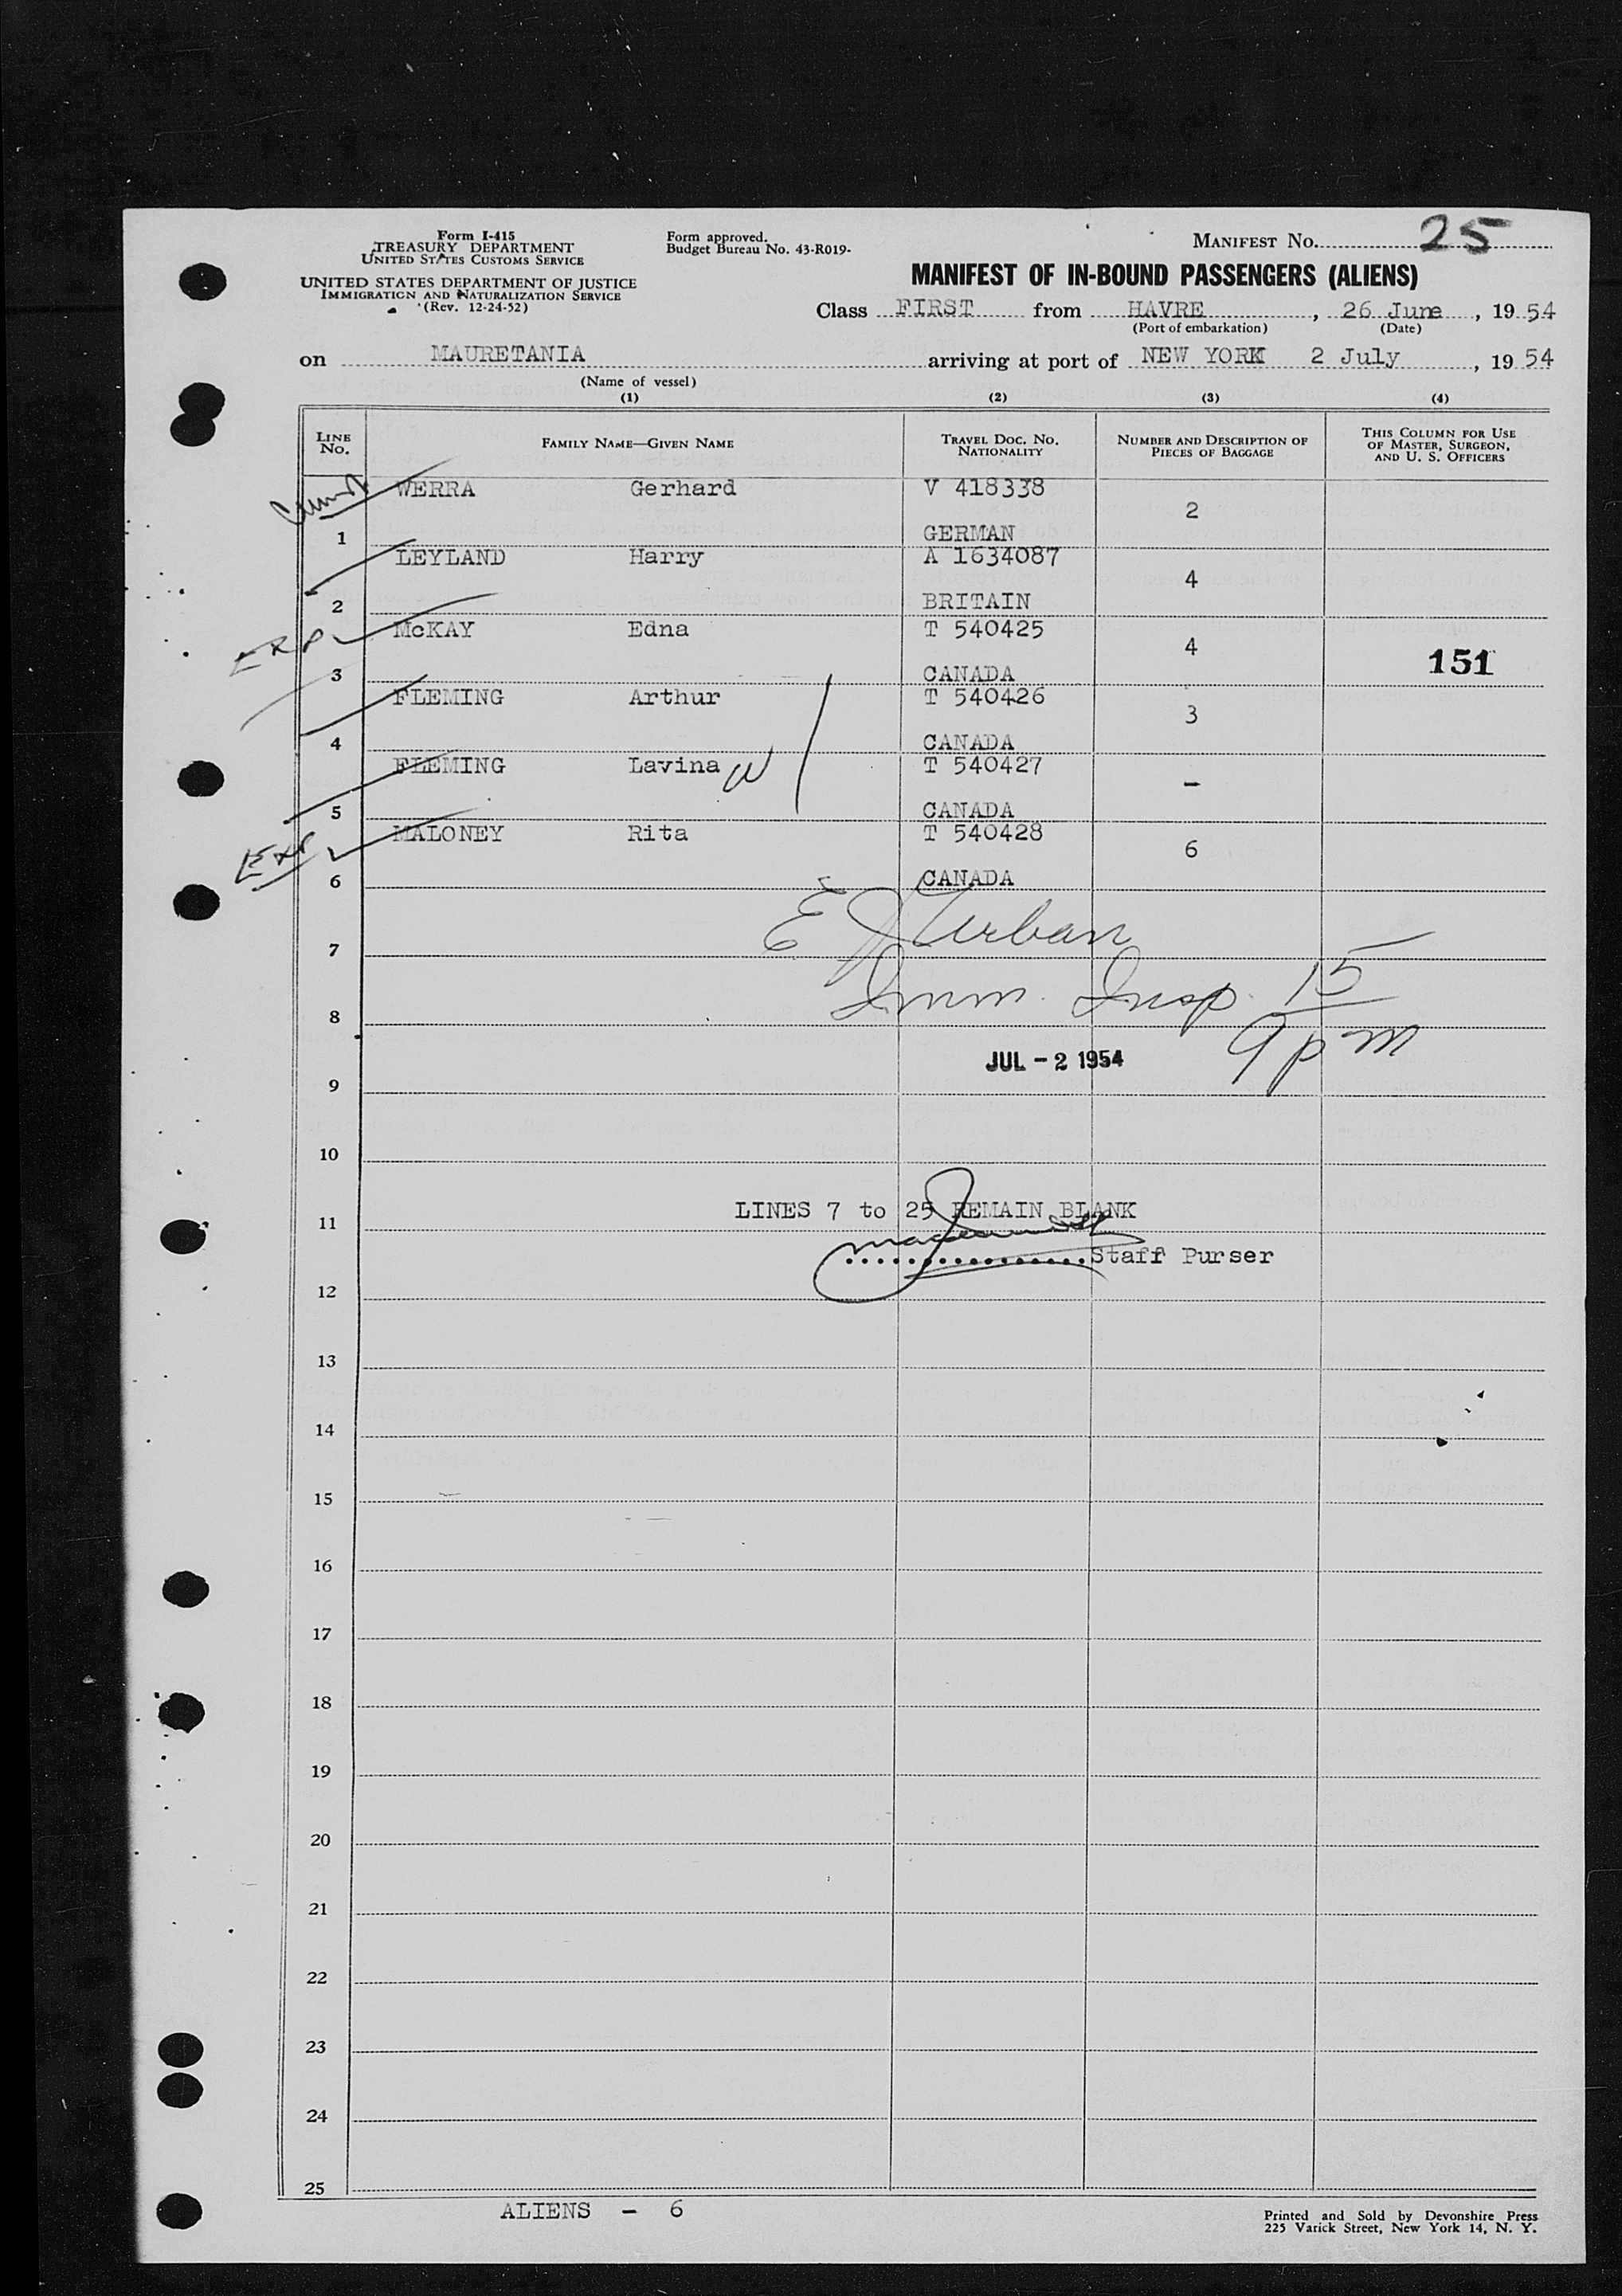 Form I-415
TREASURY DEPARTMENT
UNITED STATES CUSTOMS SERVICE
UNITED STATES DEPARTMENT OF JUSTICE
IMMIGRATION AND NATURALIZATION SERVICE
(Rev. 12-24-52)
Form approved.
Budget Bureau No. 43-R019-
MANIFEST NO. 25
MANIFEST OF IN-BOUND PASSENGERS (ALIENS)
Class FIRST from HAVRE, 26 June, 19 54
(Port of embarkation) (Date)
on MAURETANIA arriving at port of NEW YORK 2 July, 19 54
(Name of vessel)
(1) (2) (3) (4)
LINE NO. FAMILY NAME—GIVEN NAME TRAVEL DOC. NO. NATIONALITY NUMBER AND DESCRIPTION OF PIECES OF BAGGAGE THIS COLUMN FOR USE OF MASTER, SURGEON, AND U. S. OFFICERS
WERRA Gerhard V 418338 2
1 GERMAN
LEYLAND Harry A 1634087 4
2 BRITAIN
McKAY Edna T 540425 4 151
3 CANADA
FLEMING Arthur T 540426 3
4 CANADA
FLEMING Lavina W T 540427 -
5 CANADA
MALONEY Rita T 540428 6
6 CANADA
E J Urban
7
Imm. Insp. 15
8
9 pm
JUL - 2 1954
9
10
LINES 7 to 25 REMAIN BLANK
11
Staff Purser
12
13
14
15
16
17
18
19
20
21
22
23
24
25
ALIENS - 6
Printed and Sold by Devonshire Press
225 Varick Street, New York 14, N. Y.